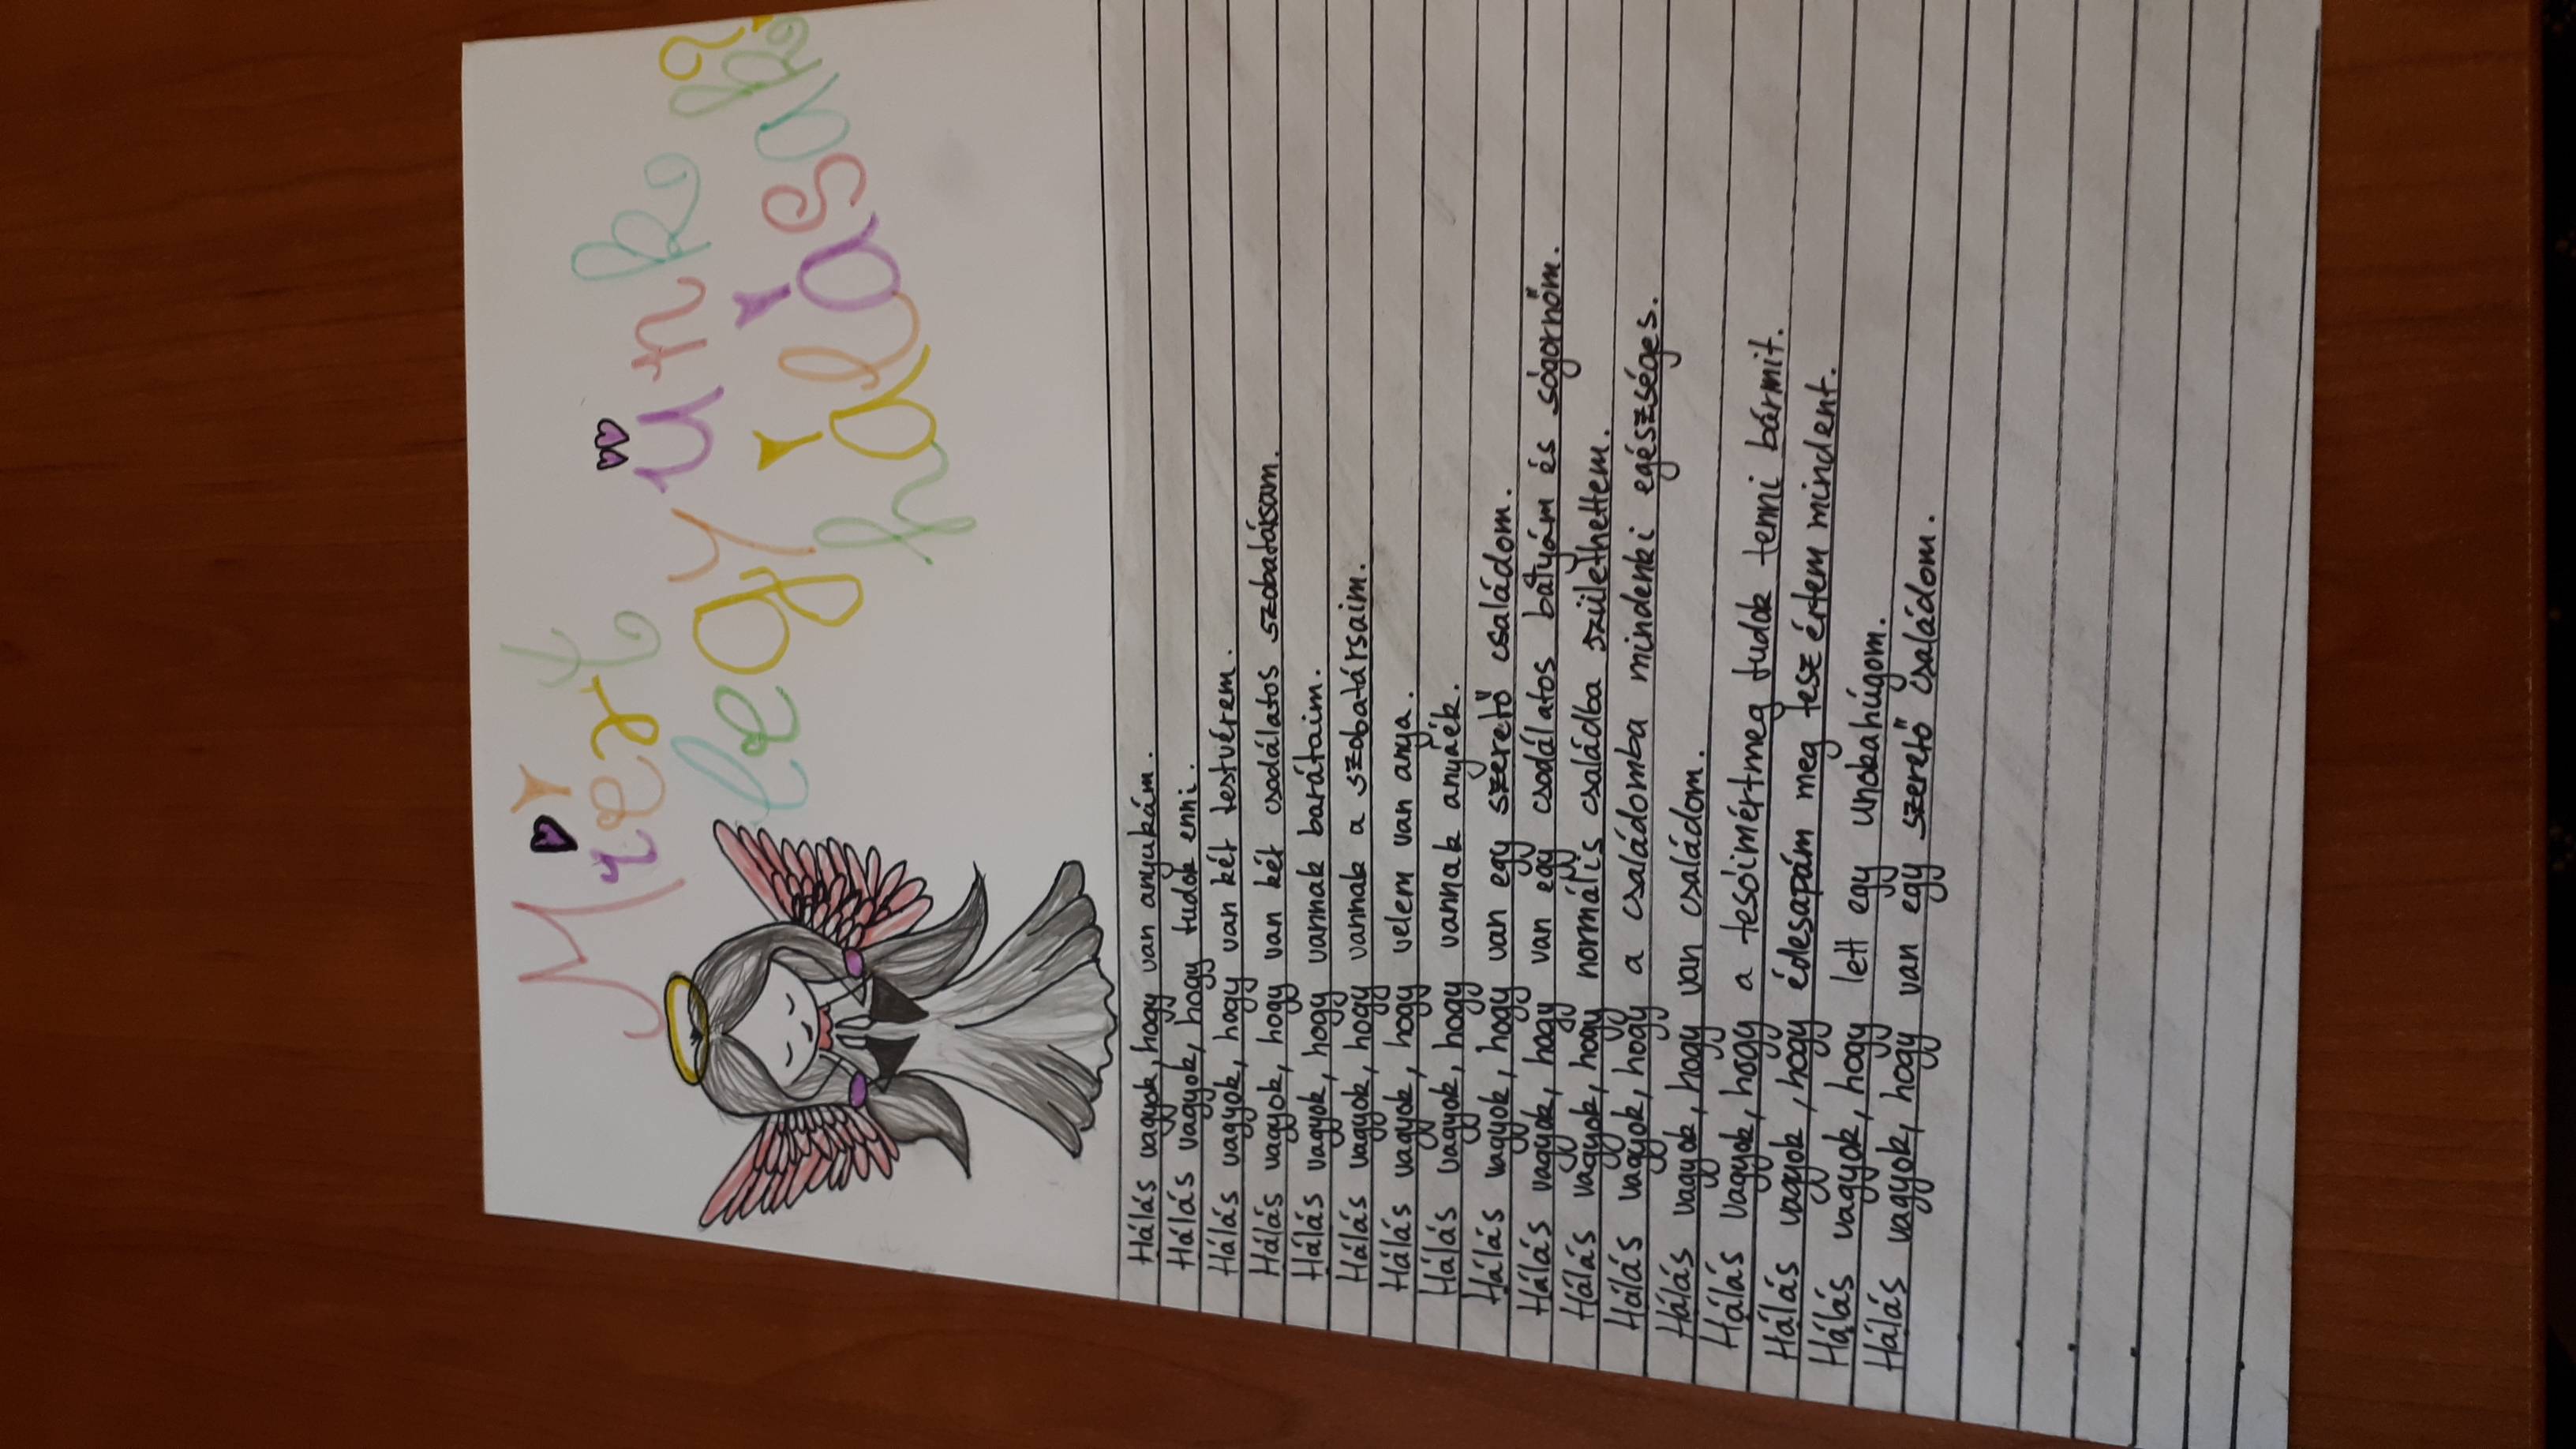 Miért
legyünk
hálásak?
Hálás vagyok, hogy van anyukám.
Hálás vagyok, hogy tudok enni.
Hálás vagyok, hogy van két testvérem.
Hálás vagyok, hogy van két csodálatos szobatársam.
Hálás vagyok, hogy vannak barátaim.
Hálás vagyok, hogy vannak a szobatársaim.
Hálás vagyok, hogy velem van anya.
Hálás vagyok, hogy vannak anyáék.
Hálás vagyok, hogy van egy szerető családom.
Hálás vagyok, hogy van egy csodálatos bátyám és sógornőm.
Hálás vagyok, hogy normális családba születhettem.
Hálás vagyok, hogy a családomba mindenki egészséges.
Hálás vagyok, hogy van családom.
Hálás vagyok, hogy a tesóimértmeg tudok tenni bármit.
Hálás vagyok, hogy édesapám meg tesz értem mindent.
Hálás vagyok, hogy lett egy unokahúgom.
Hálás vagyok, hogy van egy szerető családom.